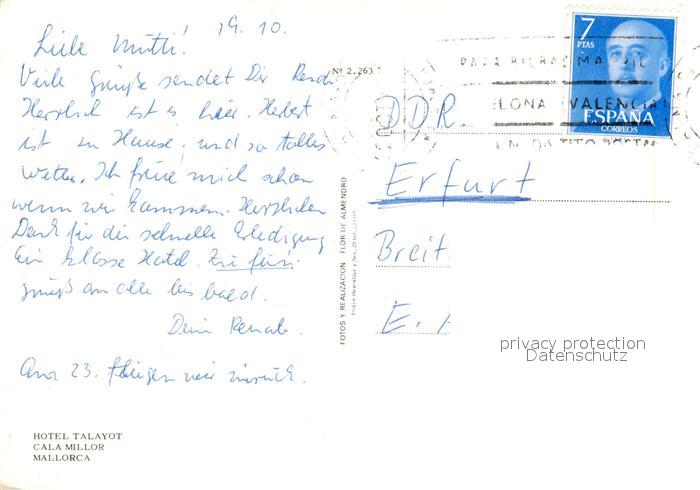 19. 10.
Liebe Mutti!
Viele Grüße sendet Dir
Herrlich ist es hier. Herbst
ist zu Hause. und so tolles
Wetter. Ich freue mich schon
wenn wir kommen. Herzlichen
Dank für die schnelle Erledigung
Ein klasse Hotel.
grüß an alle bis bald.
Deine Renate.
Am 23. fliegen wir zurück.
HOTEL TALAYOT
CALA MILLOR
MALLORCA
Nº 2.263
FOTOS Y REALIZACION FLOR DE ALMENDRO
7
PTAS
ESPAÑA
CORREOS
MADRID
VALENCIA
DDR
Erfurt
Breit
E.
privacy protection
Datenschutz